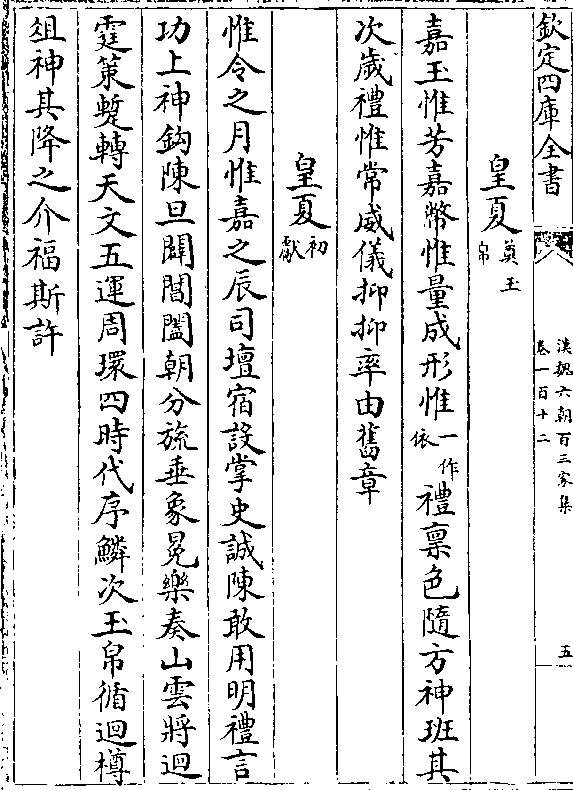 欽定四庫全書
漢魏六朝百三家集
卷一百十二
五
皇夏奠玉帛
嘉玉惟芳嘉幣惟量成形惟一作依禮稟色隨方神班其
次歲禮惟常威儀抑抑率由舊章
皇夏初獻
惟令之月惟嘉之辰司壇宿設掌史誠陳敢用明禮言
功上神鈎陳旦闢閶闔朝分旒垂象冕樂奏山雲將迴
霆策蹔轉天文五運周環四時代序鱗次玉帛循迴樽
俎神其降之介福斯許